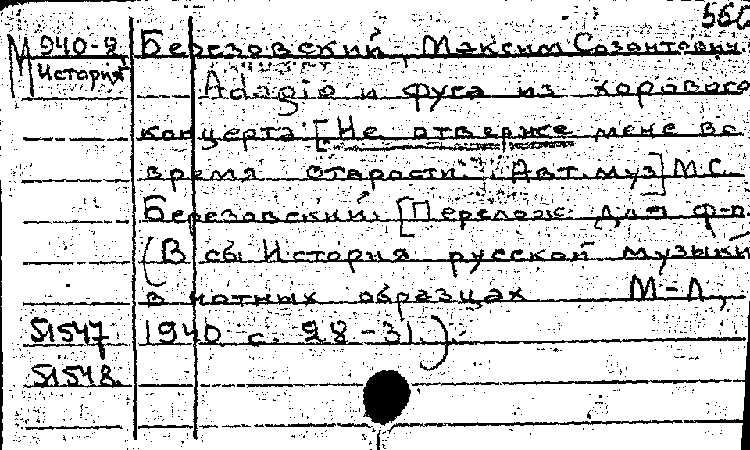 556
М 940-2 Березовский, Максим Созонтович.
История Adagio и фуга из хорового
концерта: [Не отвержи мене во
время старости. Авт. муз] М.С.
Березовский. [Перелож. для ф-п.
(В сб: История русской музыки
в нотных образцах М-Л,
51547 1940 с. 28-31.)
51548.